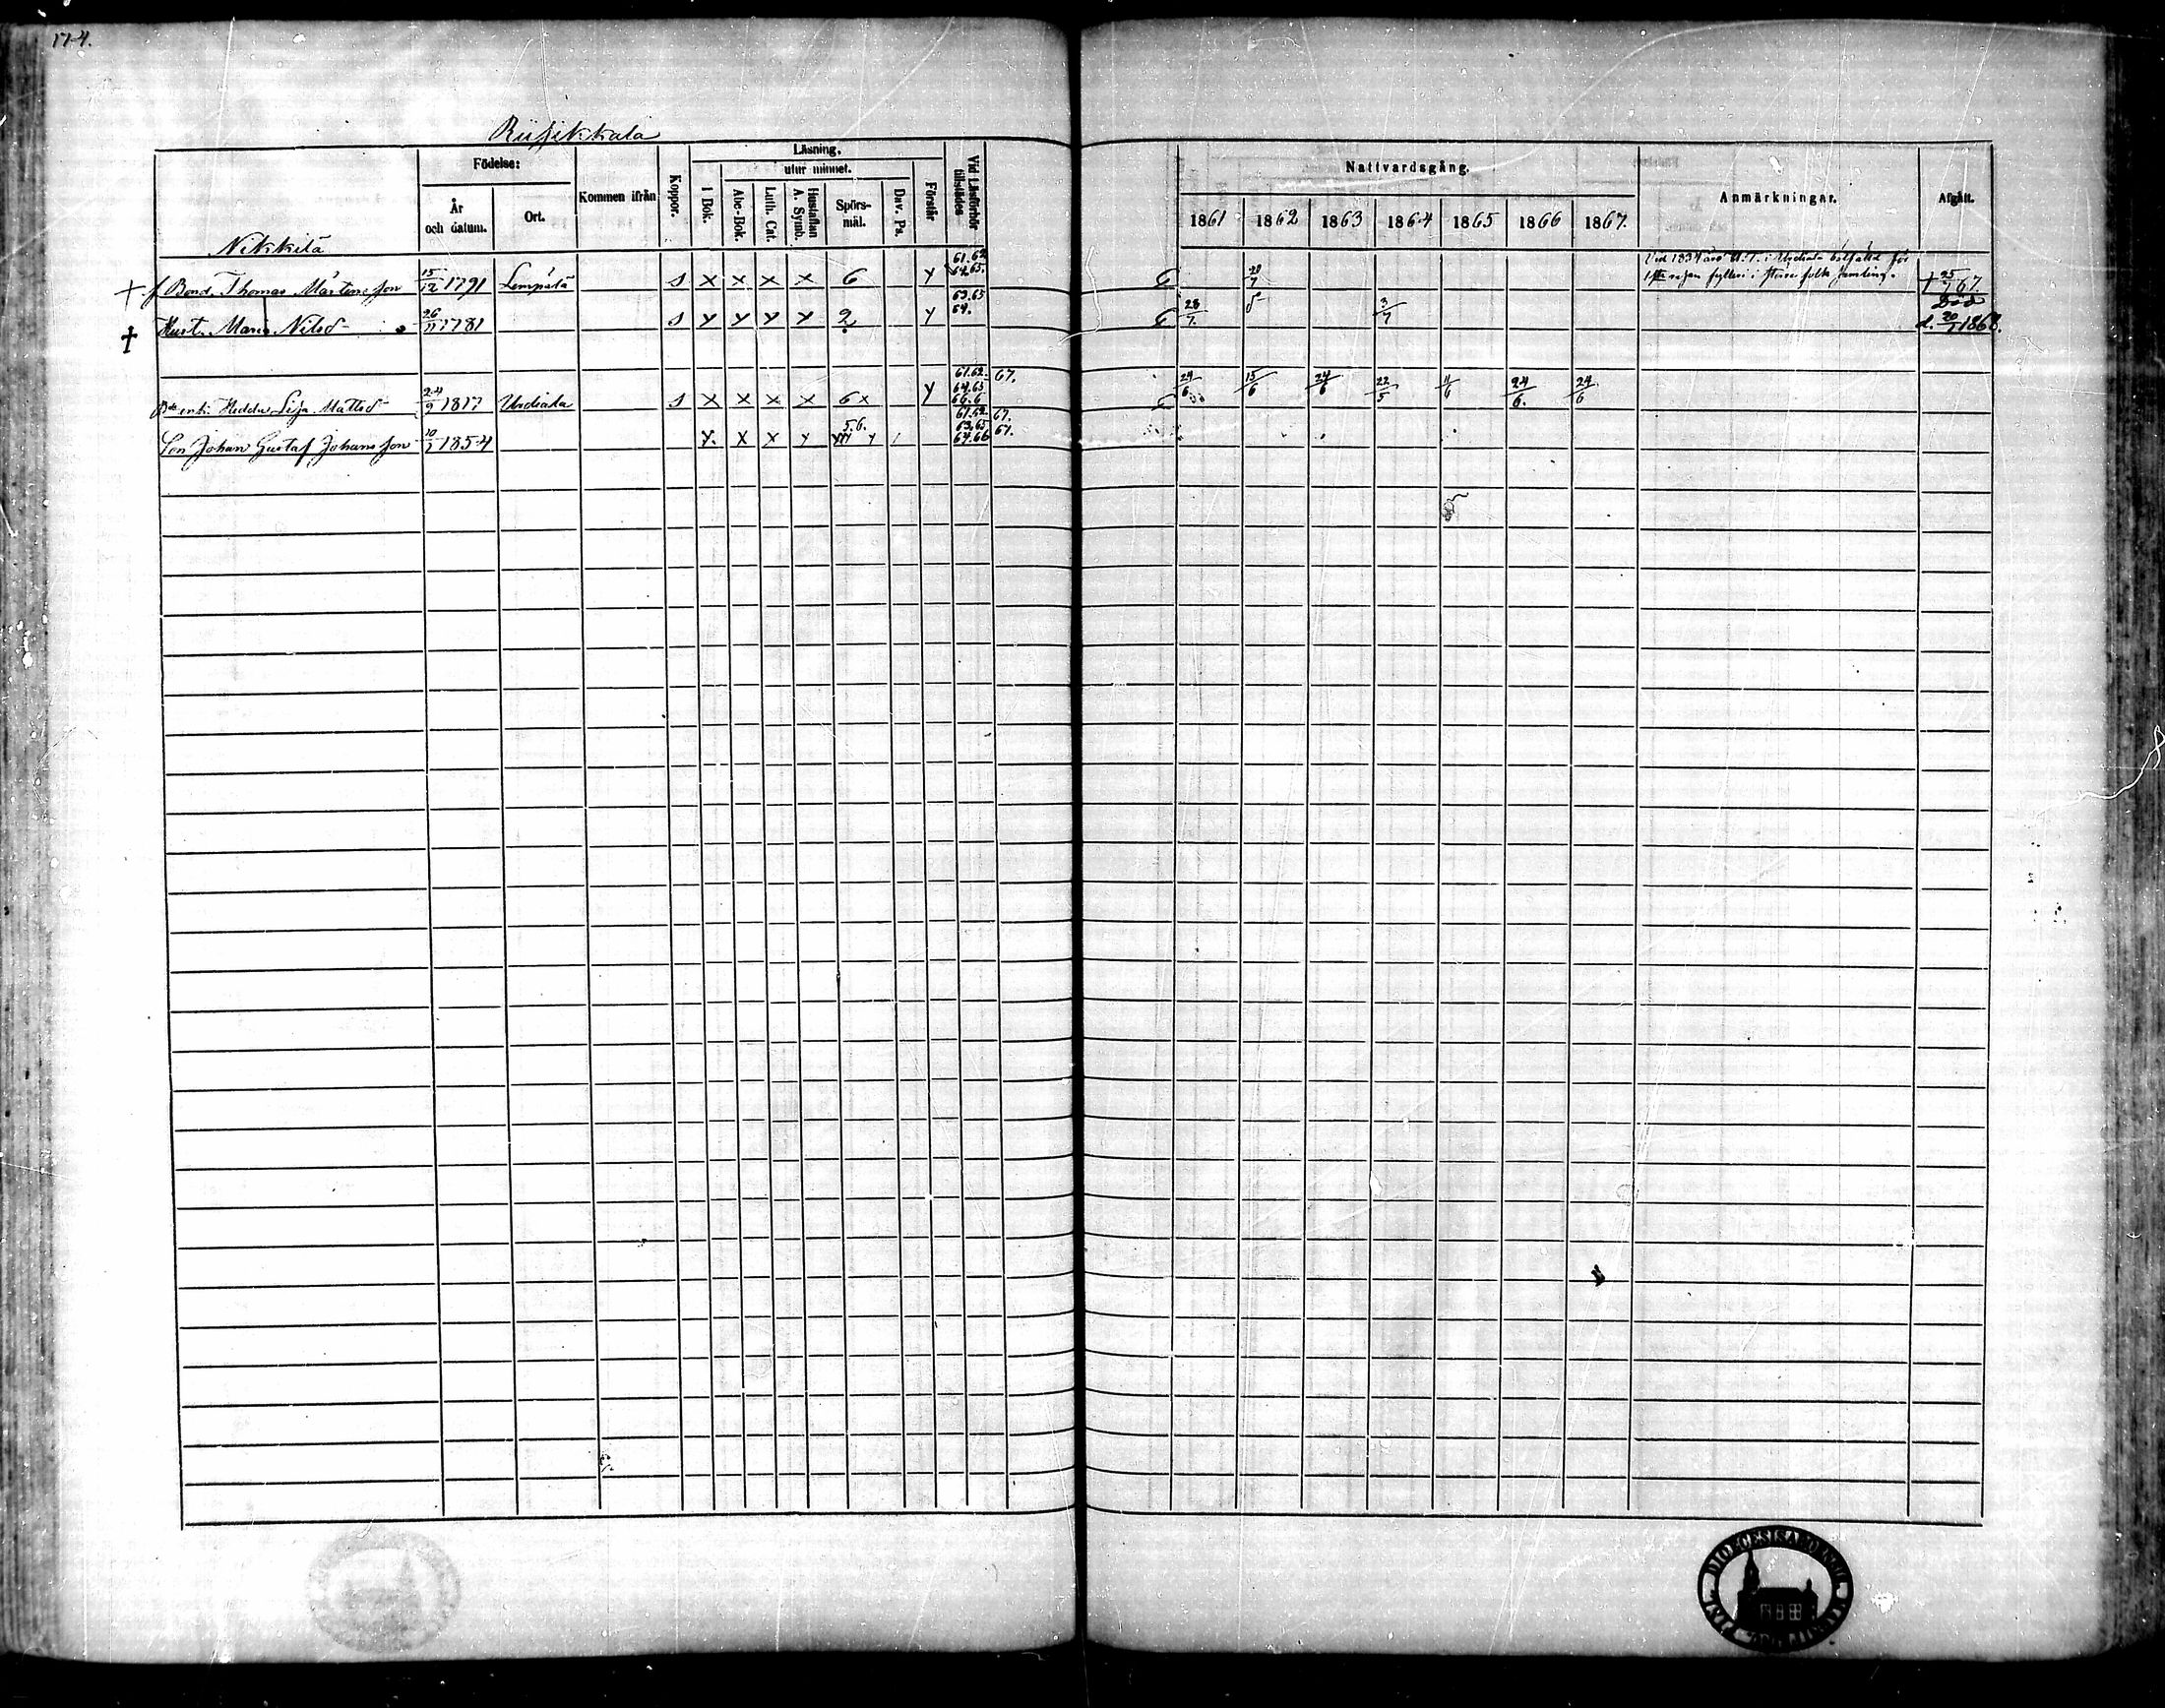 174.
Riissikkala
Födelse:
Läsning.
utur minnet.
År och datum.
Ort.
Kommen ifrån
Koppor.
I Bok.
Abc-Bok.
Luth. Cat.
Hustaflan A. Symb.
Spörsmål.
Dav. Ps.
Förstår
Vid Läsförhör tillstädes
Nattvardsgång.
1861 1862 1863 1864 1865 1866 1867.
Anmärkningar.
Afgått.
Nikkilä
+ f Bond. Thomas Mårtensson 15/12 1791 Lempälä s x x x x 6 y 61.62 64.65. 29/7
Vid 1834 års U. T. i Urdiala bötfälld för
1sta resan fylleri i stora folksamling. + 25/1 67.
† Hust. Maria Nilsd 26/11 1781 s y y y y 2 y 63.65 64. 28/7 3/7 Död d. 20/1 1868.
Hedda Lisa Mattsd 24/9 1817 Urdiala s x x x x 6x y 61.62. 64.65 66.6 67. 24/6 15/6 24/6 22/5 11/6 24/6. 24/6
Son Johan Gustaf Johansson 10/7 1854 y. x x y 5.6. y 61.62. 63.65 64.66 67. 67.